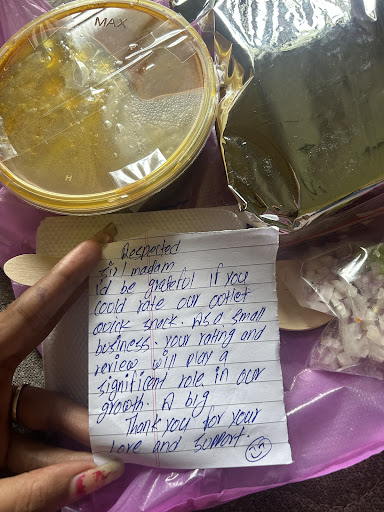 MAX
H
Respected
Sir / madam
I'd be grateful if you
could rate our outlet
quick snack. As a small
business. your rating and
review will play a
significant role in our
growth. A big
Thank you for your
love and support.